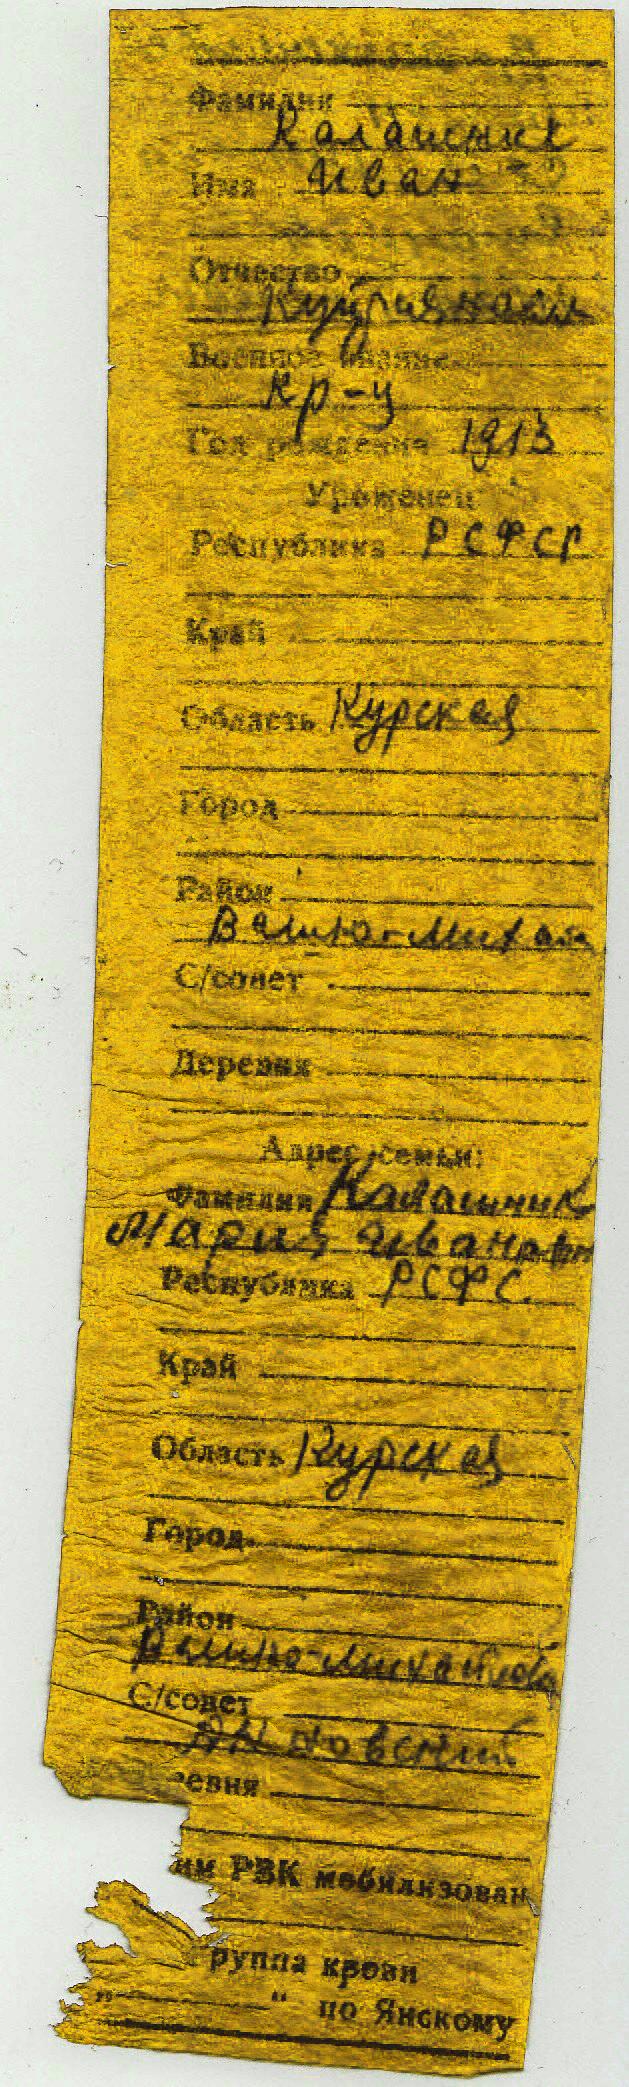 Фамилия
Калашник
Имя Иван
Отчество
Военное звание
Кр-ц
Год рождения 1913
Уроженец
Республика РСФСР
Край
Область Курская
Город
Район
Велико-Михай
С/совет
Деревня
Адрес семьи:
Фамилия Калашник
Мария Ивановн
Республика РСФС
Край
Область Курская
Город
Район
Велико-Михайлов
С/совет
евня
им РВК мобилизован
руппа крови
„ “ по Янскому